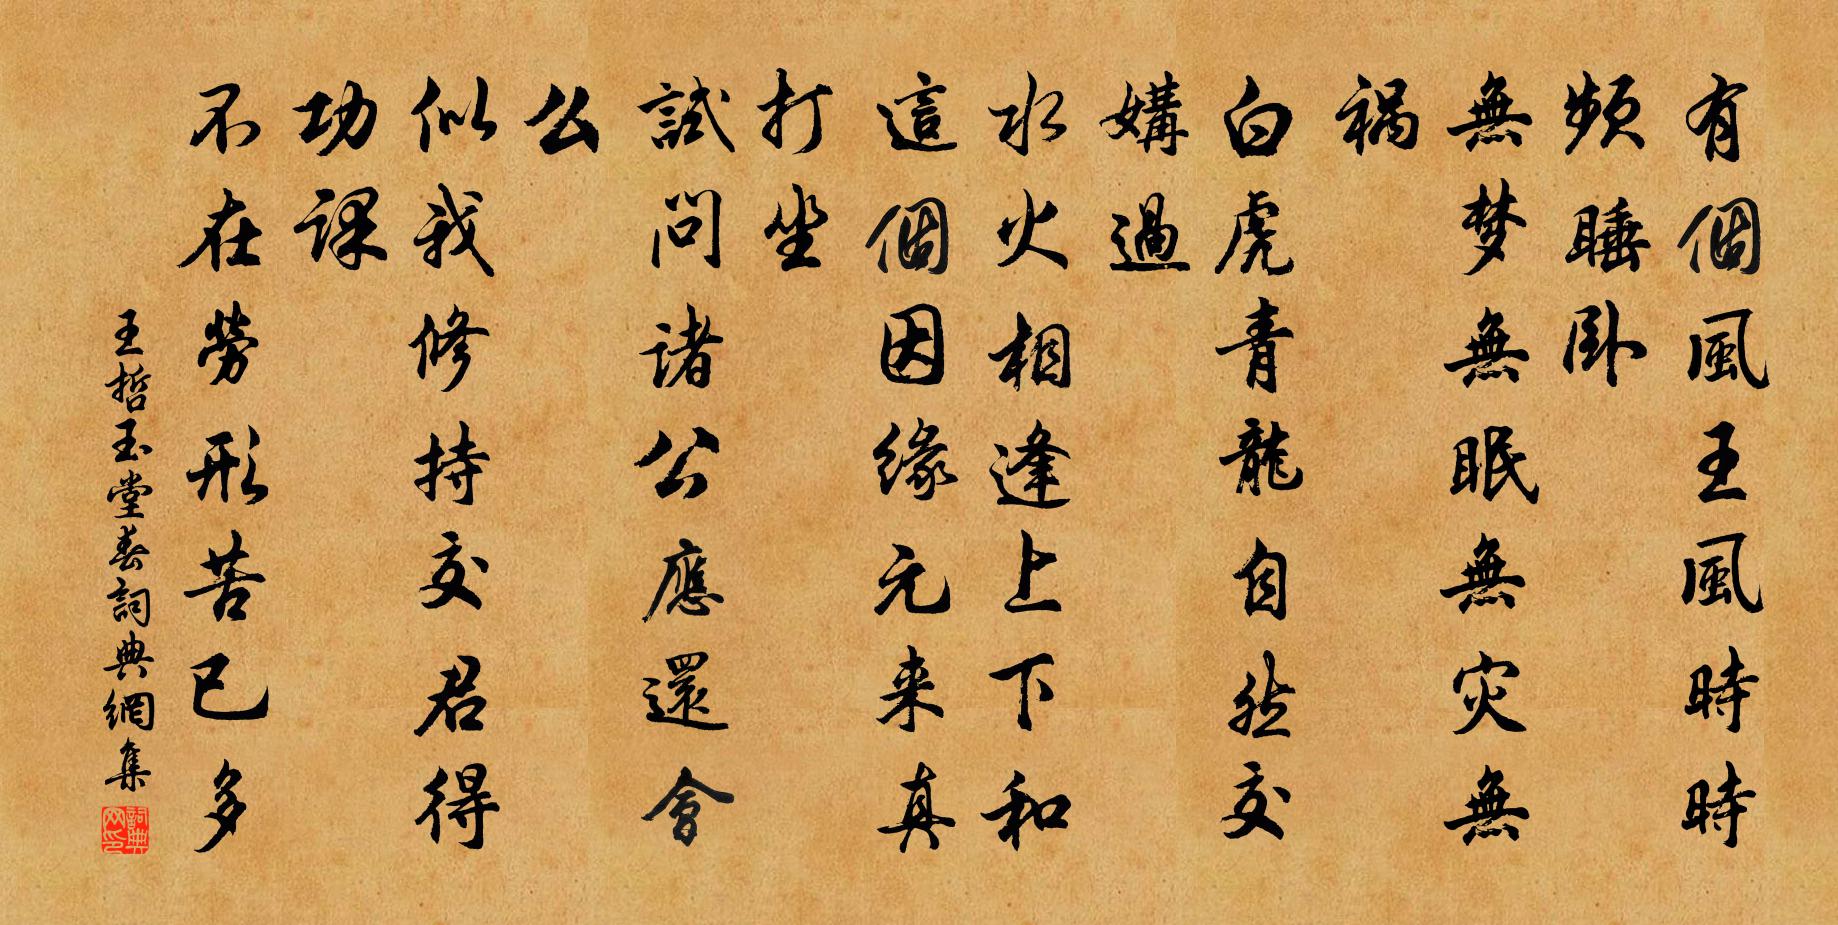 有個風王風時時
頻睡卧
無梦無眠無灾無
禍
白虎青龍自然交
媾過
水火相逢上下和
這個因緣元来真
打坐
試問諸公應還會
么
似我修持交君得
功課
不在勞形苦已多
王哲玉堂春詞典網集
詞典网印